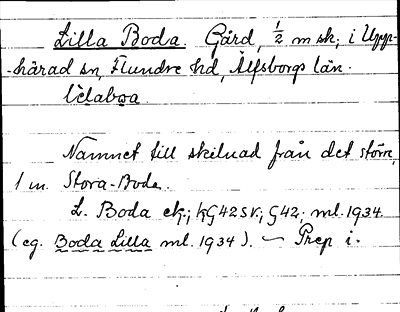 Lilla Boda. Gård, 1/2 m sk, i Upp-
härad sn, Flundre hd, Älfsborgs län.
lìlabwa
Namnet till skilnad från det större,
1 m. Stora-Boda.
L. Boda ek; kG42SV; G42; ml. 1934
(eg. Boda Lilla ml. 1934). ~ Prep i.